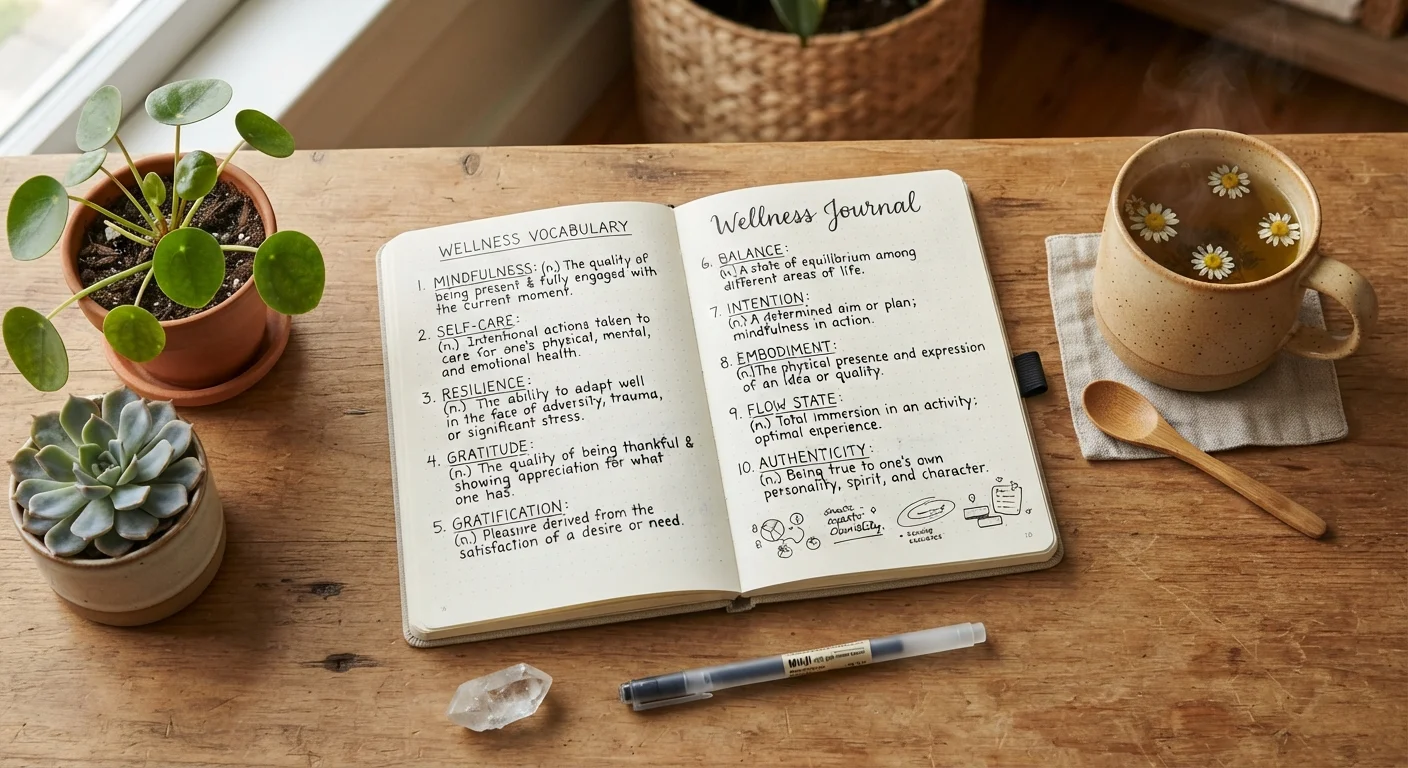 WELLNESS VOCABULARY
1. MINDFULNESS: (n.) The quality of
being present & fully engaged with
the current moment.
2. SELF-CARE:
(n.) Intentional actions taken to
care for one's physical, mental,
and emotional health.
3. RESILIENCE:
(n.) The ability to adapt well
in the face of adversity, trauma,
or significant stress.
4. GRATITUDE:
(n.) The quality of being thankful &
showing appreciation for what
one has.
5. GRATIFICATION:
(n.) Pleasure derived from the
satisfaction of a desire or need.
Wellness Journal
6. BALANCE:
(n.) A state of equilibrium among
different areas of life.
7. INTENTION:
(n.) A determined aim or plan;
mindfulness in action.
8. EMBODIMENT:
(n.) The phytical presence and expression
of an idea or quality.
9. FLOW STATE:
(n.) Total immersion in an activity;
optimal experience.
10. AUTHENTICITY:
(n.) Being true to one's own
personality, spirit, and character.
MUJI